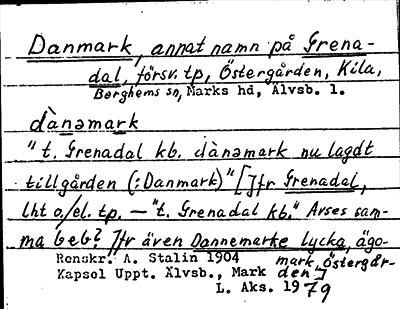 Danmark, annat namn på Grena-
dal, försv. tp, Östergården, Kila,
Berghems sn, Marks hd, Älvsb. l.
dànəmark
"t. Grenadal kb. dànəmark nu lagdt
till gården (: Danmark)" [Jfr Grenadal,
lht o/el. tp. — "t. Grenadal kb." Avses sam-
ma beb? Jfr även Dannemarke lycka, ägo-
mark, Östergår-
den]
Renskr. A. Stalin 1904
Kapsel Uppt. Älvsb., Mark
L. Aks. 1979